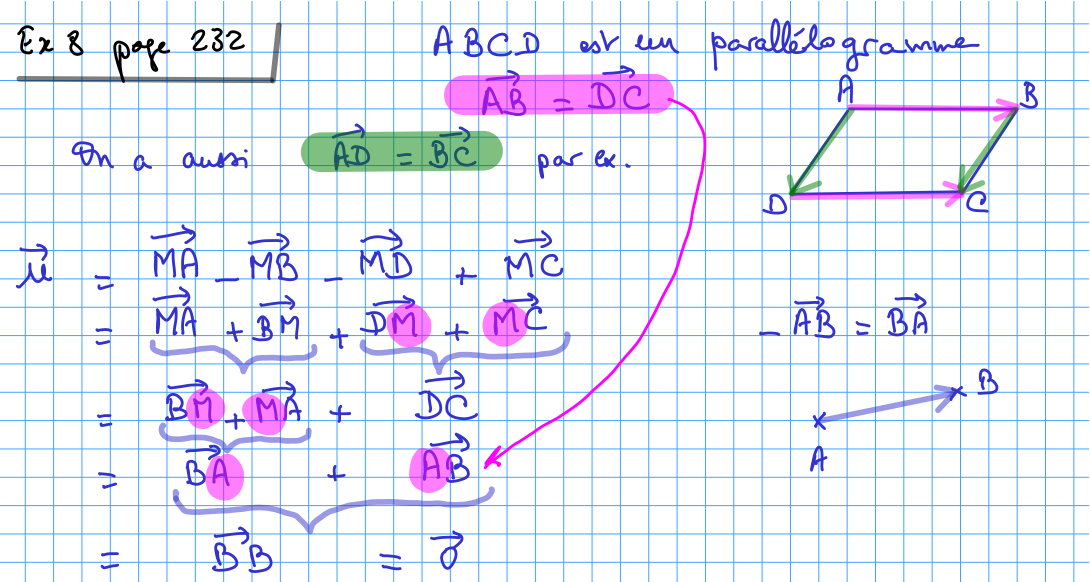 Ex 8 page 232
ABCD est un parallélogramme
$\overrightarrow{AB} = \overrightarrow{DC}$
On a aussi $\overrightarrow{AD} = \overrightarrow{BC}$ par ex.
A
B
D
C
$\vec{u} = \overrightarrow{MA} - \overrightarrow{MB} - \overrightarrow{MD} + \overrightarrow{MC}$
$= \overrightarrow{MA} + \overrightarrow{BM} + \overrightarrow{DM} + \overrightarrow{MC}$
$- \overrightarrow{AB} = \overrightarrow{BA}$
$= \overrightarrow{BM} + \overrightarrow{MA} + \overrightarrow{DC}$
B
A
$= \overrightarrow{BA} + \overrightarrow{AB}$
$= \overrightarrow{BB} = \vec{0}$